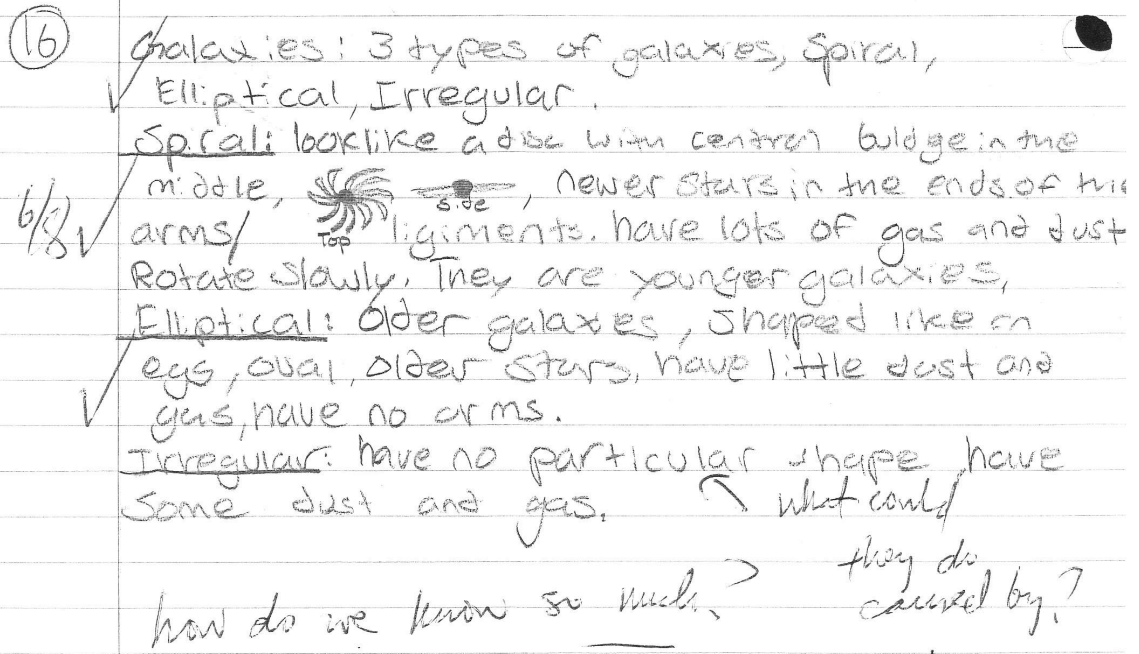 16
Galaxies: 3 types of galaxies, Spiral,
Elliptical, Irregular.
Spiral: look like a disc with central buldge in the
middle, Top side, newer stars in the ends of the
6/8
arms/ ligiments. have lots of gas and dust
Rotate slowly. They are younger galaxies,
Elliptical: Older galaxies, shaped like an
egg, oval, older stars, have little dust and
gas, have no arms.
Irregular: have no particular shape have
some dust and gas.
what could
they do
caused by?
how do we know so much?